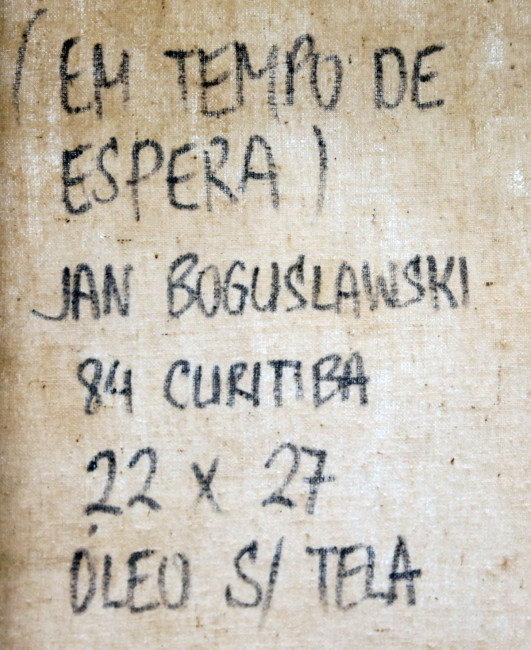 (EM TEMPO DE
ESPERA)
JAN BOGUSLAWSKI
84 CURITIBA
22 x 27
ÓLEO S/ TELA